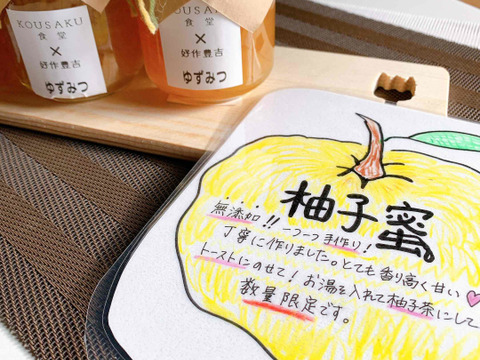 KOUSAKU
食堂
×
好作豊吉
ゆずみつ
KOUSAKU
食堂
×
好作豊吉
ゆずみつ
柚子蜜。
無添加!! 一つ一つ手作り!
丁寧に作りました。とても香り高く甘い♡
トーストにのせて! お湯を入れて柚子茶にして
数量限定です。